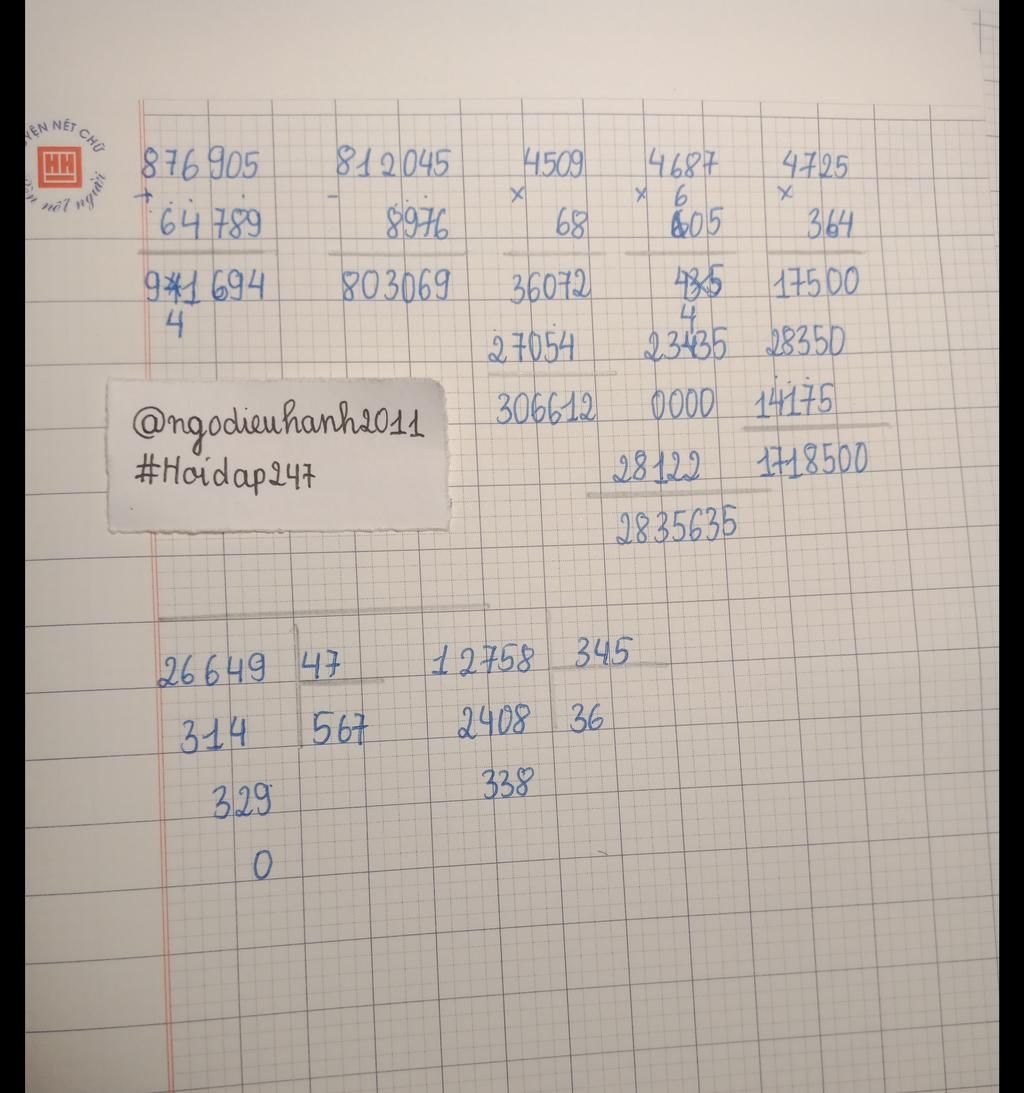 YỆN NÉT CHỮ
HH
nết người
876905 812045 4509 4687 4725
+ - × × 6 ×
64789 8976 68 605 364
941694 803069 36072 435 17500
4 4
27054 23435 28350
306612 0000 14175
28122 1718500
2835635
@ngodieuhanh2011
#Hoidap247
26649 47 12758 345
314 567 2408 36
329 338
0